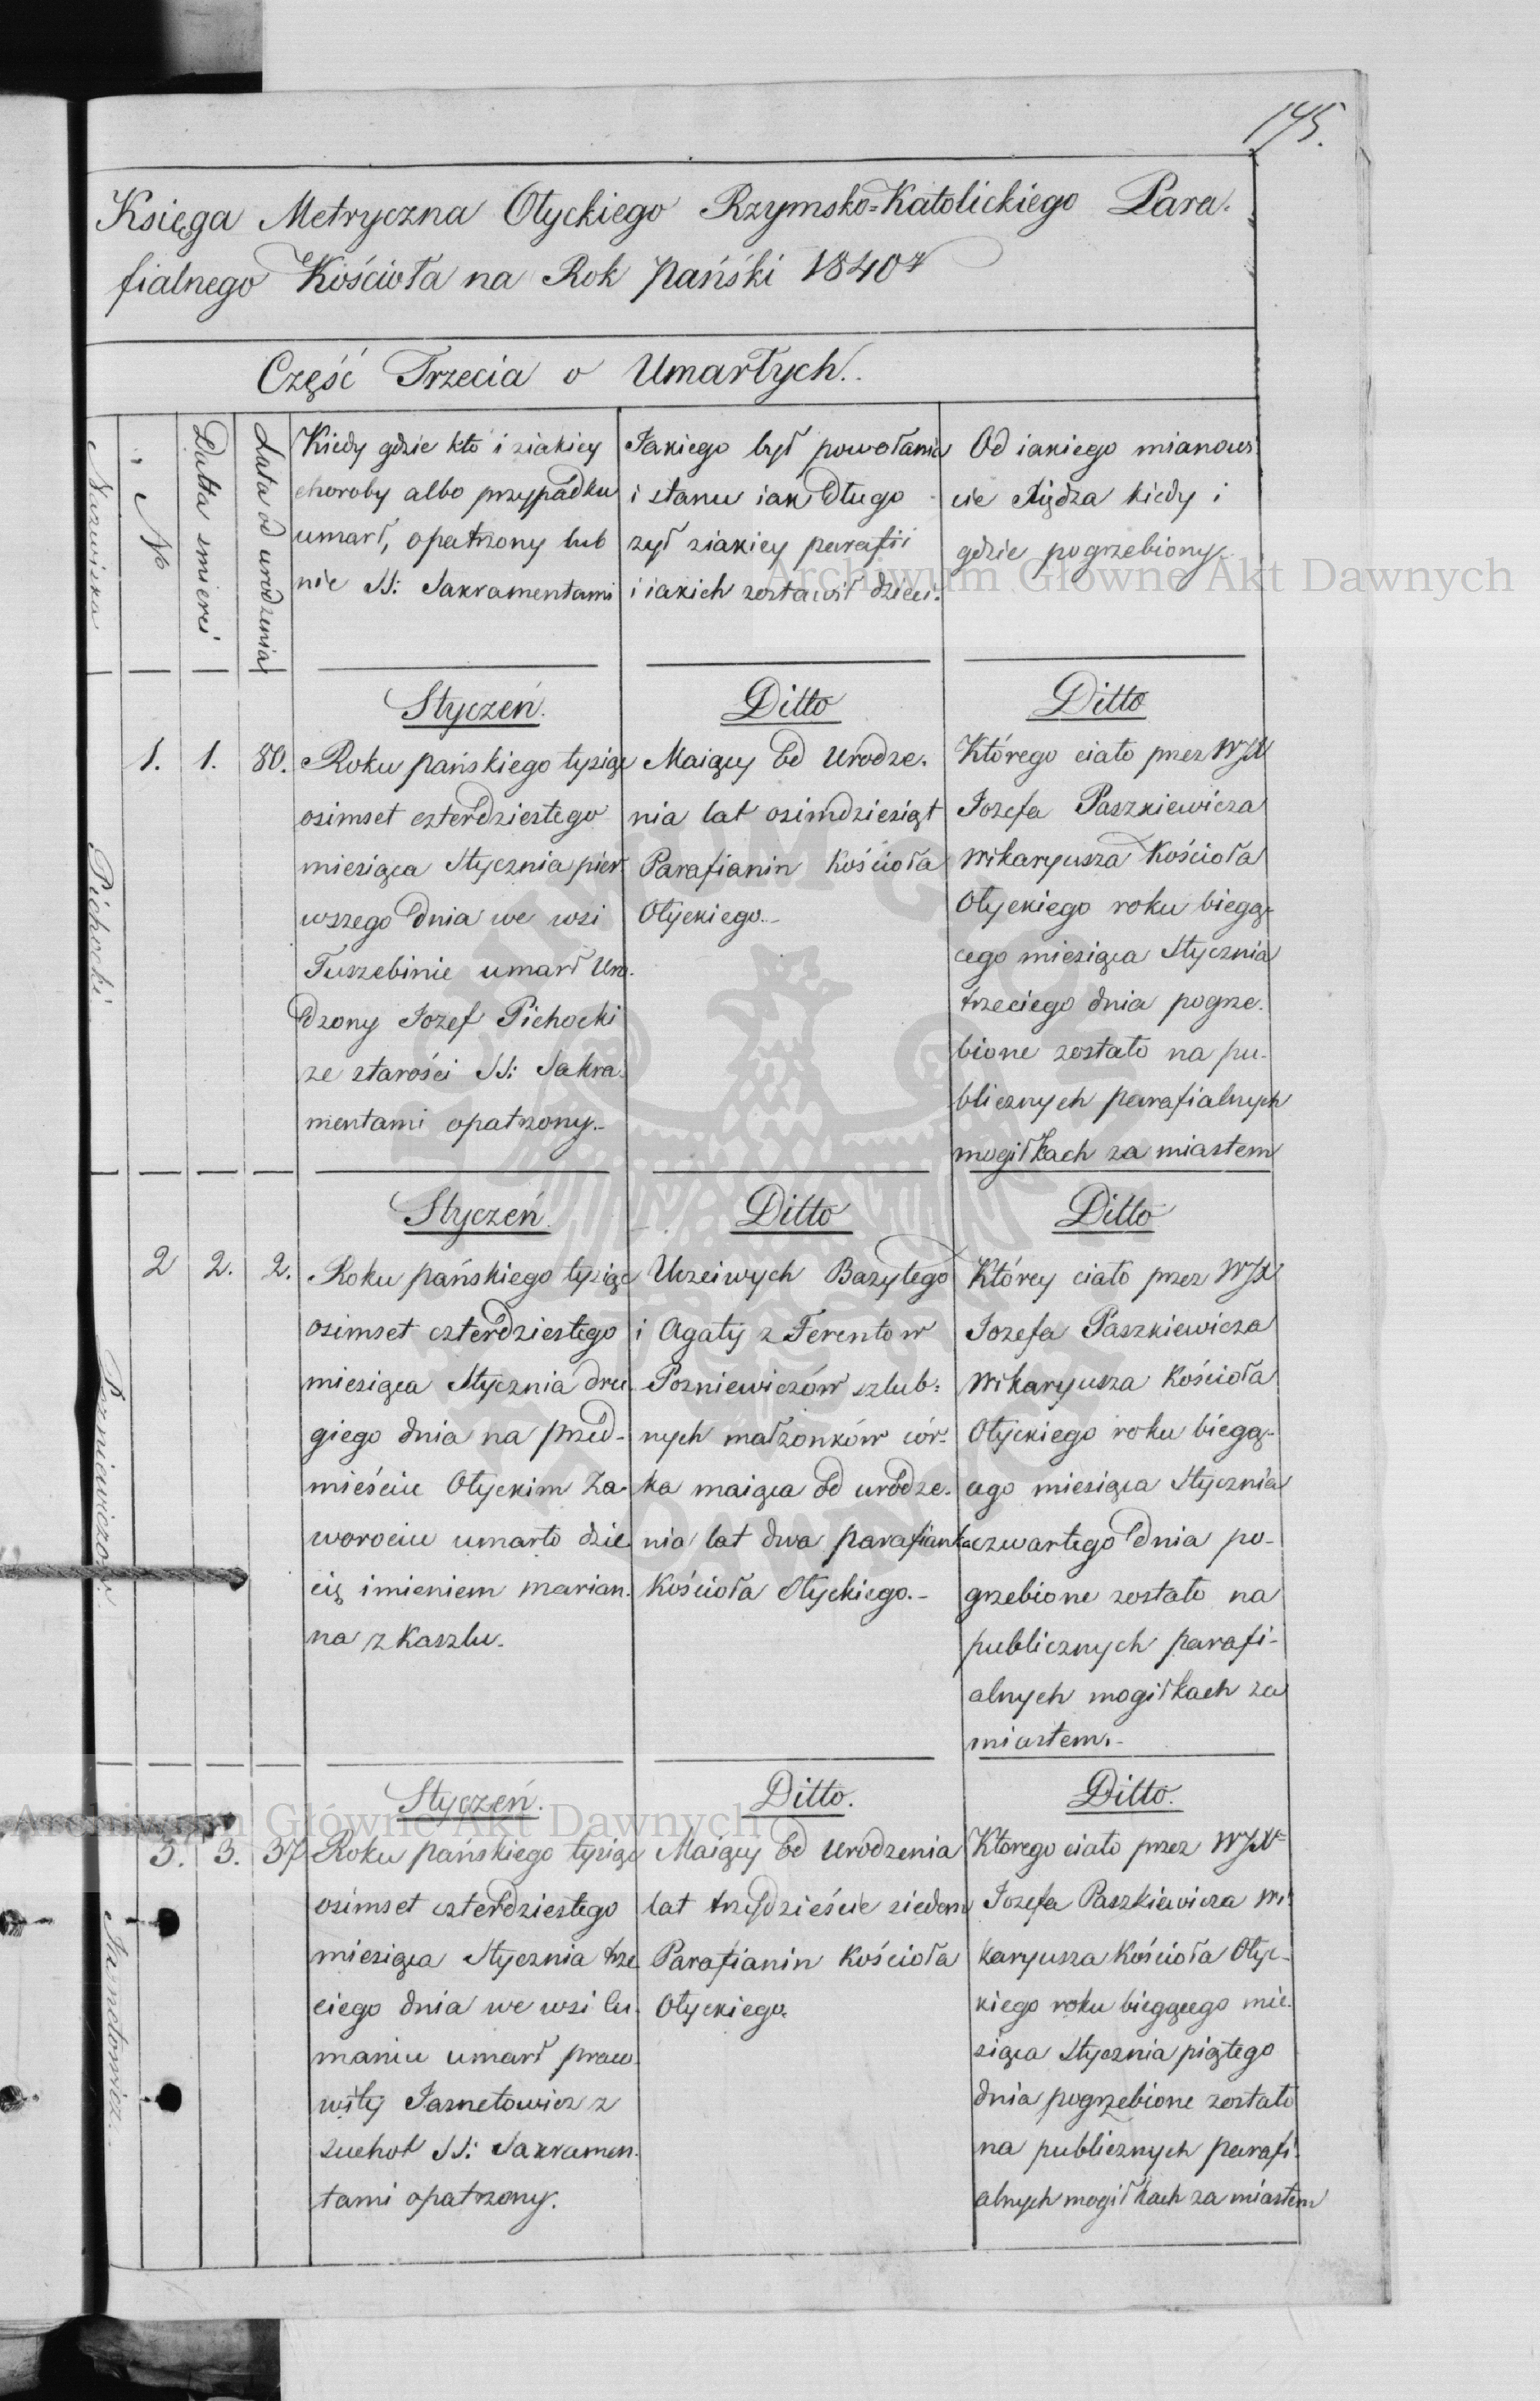 145.
Księga Metryczna Ołyckiego Rzymsko=Katolickiego Para.
fialnego Kościoła na Rok Pański 1840
Część Trzecia o Umarłych..
Nazwiska
№
Datta smierci
Lata od urodzenia
Kiedy gdzie kto i ziakiey
choroby albo przypadku
umarł, opatrzony lub
nie SS: Sakramentami
Jakiego był powołania
i stanu iak długo
zył ziakiey parafii
i iakich zostawił dzieci.
Od iakiego mianowi
cie Xiędza kiedy i
gdzie pogrzebiony.
Archiwum Główne Akt Dawnych
Pichocki
1.
1.
80.
Styczeń.
Roku pańskiego tysiąc
osimset czterdziestego
miesiąca Stycznia pier
wszego dnia we wsi
Tuszebinie umarł Uro.
dzony Jozef Pichocki
ze starości SS: Sakra.
mentami opatrzony.-
Ditto
Maiący od Urodze.
nia lat osimdziesiąt
Parafianin Kościoła
Ołyckiego.-
Ditto
Którego ciało przez WJX
Jozefa Paszkiewicza
Wikaryusza Kościoła
Ołyckiego roku biegą-
cego miesiąca Stycznia
trzeciego dnia pogrze.
bione zostało na pu-
blicznych parafialnych
mogiłkach za miastem
Pozniewiczow
2
2.
2.
Styczeń.
Roku pańskiego tysiąc
osimset czterdziestego
miesiąca Stycznia dru
giego dnia na przed-
mieściu Ołyckim Za-
worociu umarło dzie.
cię imieniem Marian.
na z Kaszlu.
Ditto
Uczciwych Bazylego
i Agaty z Ferentow
Pozniewiczów szlub=
nych małżonków cór-
ka maiąca od urodze.
nia lat dwa parafianka
Kościoła Ołyckiego.-
Ditto
Którey ciało przez WJX
Jozefa Paszkiewicza
Wikaryusza Kościoła
Ołyckiego roku biegą-
cego miesiąca Stycznia
czwartego dnia po-
grzebione zostało na
publicznych parafi-
alnych mogiłkach za
miastem.-
Archiwum Główne Akt Dawnych
Jarnetowicz
3.
3.
37
Styczeń.
Roku pańskiego tysiąc
osimset czterdziestego
miesiąca Stycznia trze
ciego dnia we wsi Cu.
maniu umarł praco.
wity Jarnetowicz z
Suchot SS: Sakramen.
tami opatrzony.
Ditto.
Maiący od Urodzenia
lat trzydzieście siedem
Parafianin Kościoła
Ołyckiego.
Ditto.
Ktorego ciało przez WJX
Jozefa Paszkiewicza Wi
karyusza Kościoła Ołyc-
kiego roku biegącego mie.
siąca Stycznia piątego
dnia pogrzebione zostało
na publicznych parafi.
alnych mogiłkach za miastem